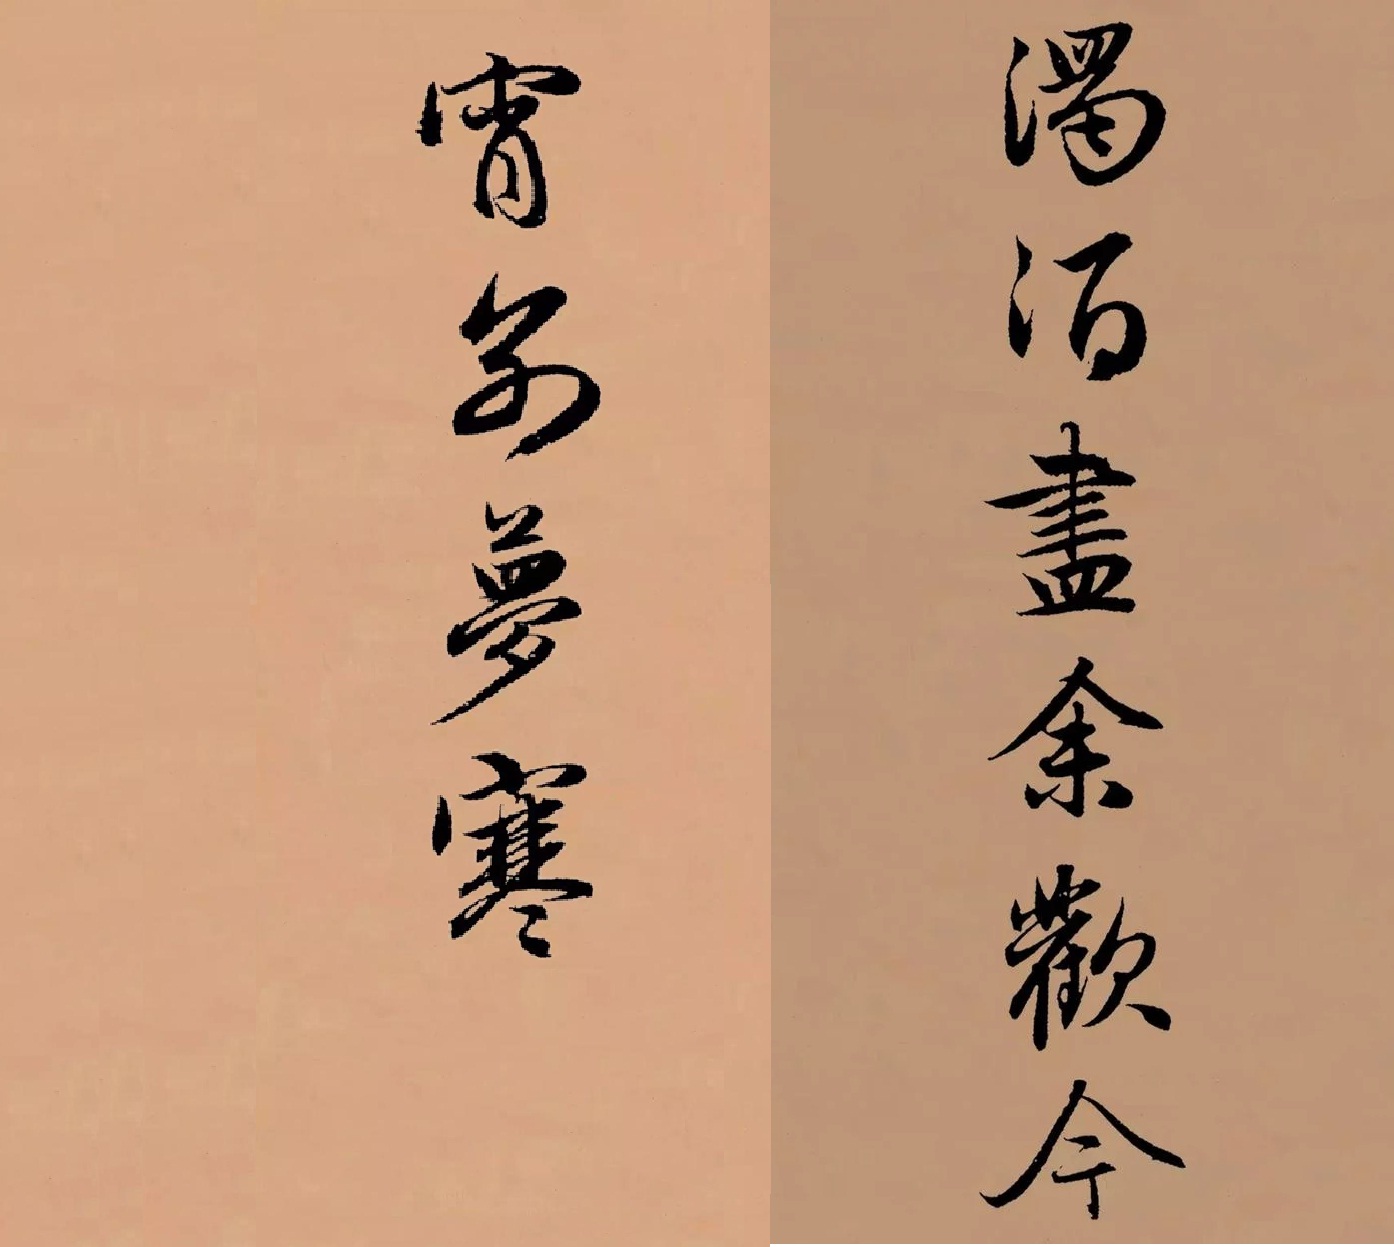 濁酒盡余歡今
宵别夢寒